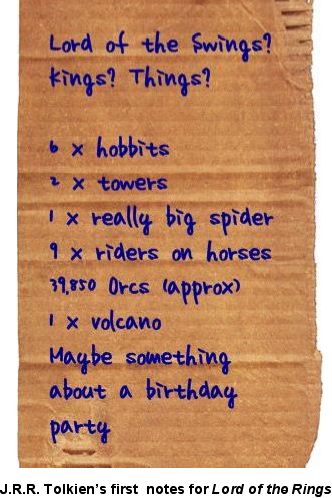 Lord of the Swings?
Kings? Things?
6 x hobbits
2 x towers
1 x really big spider
9 x riders on horses
39,850 Orcs (approx)
1 x volcano
Maybe something
about a birthday
party
J.R.R. Tolkien's first notes for Lord of the Rings